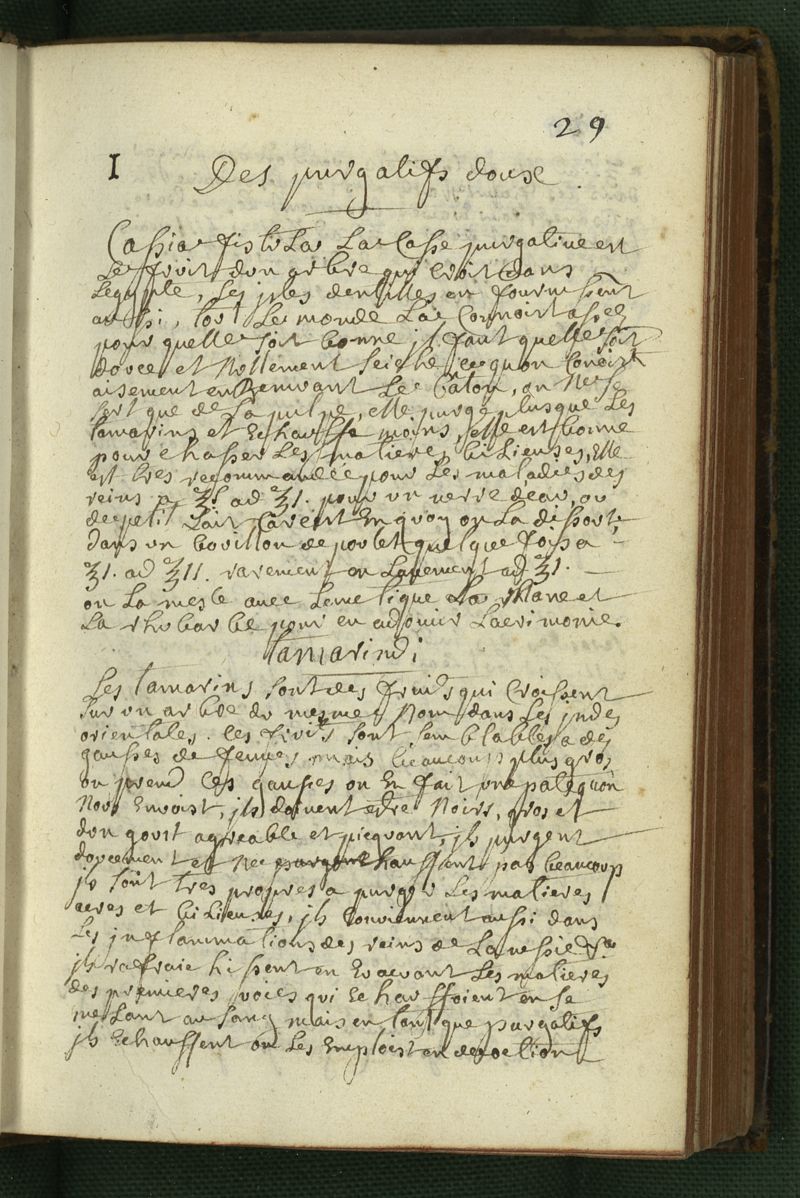 29
I Des purgatifs doux
Cassia fistula La Casse purgative est
Le fruit d'un arbre qui croit dans
L'egypte, Les isles dentilles en fournissent
aussi, tout Le monde La Connoist assez
pour quelle soit bonne il faut quelle soit
douce et Nullement seiche ce qu'on Conoist
aisement en Remuant Le Caton, on Ne se
sert que de La pulpe, elle purge plus que Les
tamarins et Echauffe moins, elle est bonne
pour chasser Les matieres bilieuses, Elle
est tres recommandée pour Les maladies des
reins a ℥ß ad ℥1. pour un verre deau, ou
de petit Lait Clarent En quoy on La dissout,
dans un bouillon de poulet quelque fois a
℥1. ad ℥11. rarement en Lavement ad ℥1.
on La mesle avec Lemetique La Mane et
La rhubarbe pour en adoucir Lacrimonie.
Tamarindi
Les tamarins sont des fruits qui Croissent
sur un arbre du mesme Nom dans Les indes
orientales. Ces fruits sont semblables a des
gausses de feuves mais beaucoup plus gros
on prend Ces gausses on En fait une pate quon
Nous Envoist, ils doivent estre Noirs, gros et
dun goust agreable et picquant, ils purgent
doucement et Ne Echauffent pas beaucoup
ils sont tres propres a purger Les matieres
acres et bilieuses, ils Conviennent aussi dans
Les inflammations des reins de La vessie &c
ils rafraichissent en Evacuant Les matieres
des premieres voies qui Echauffoient en se
meslant au sang mais en tant que purgatifs
ils Echauffent on Les Emploist en decoction